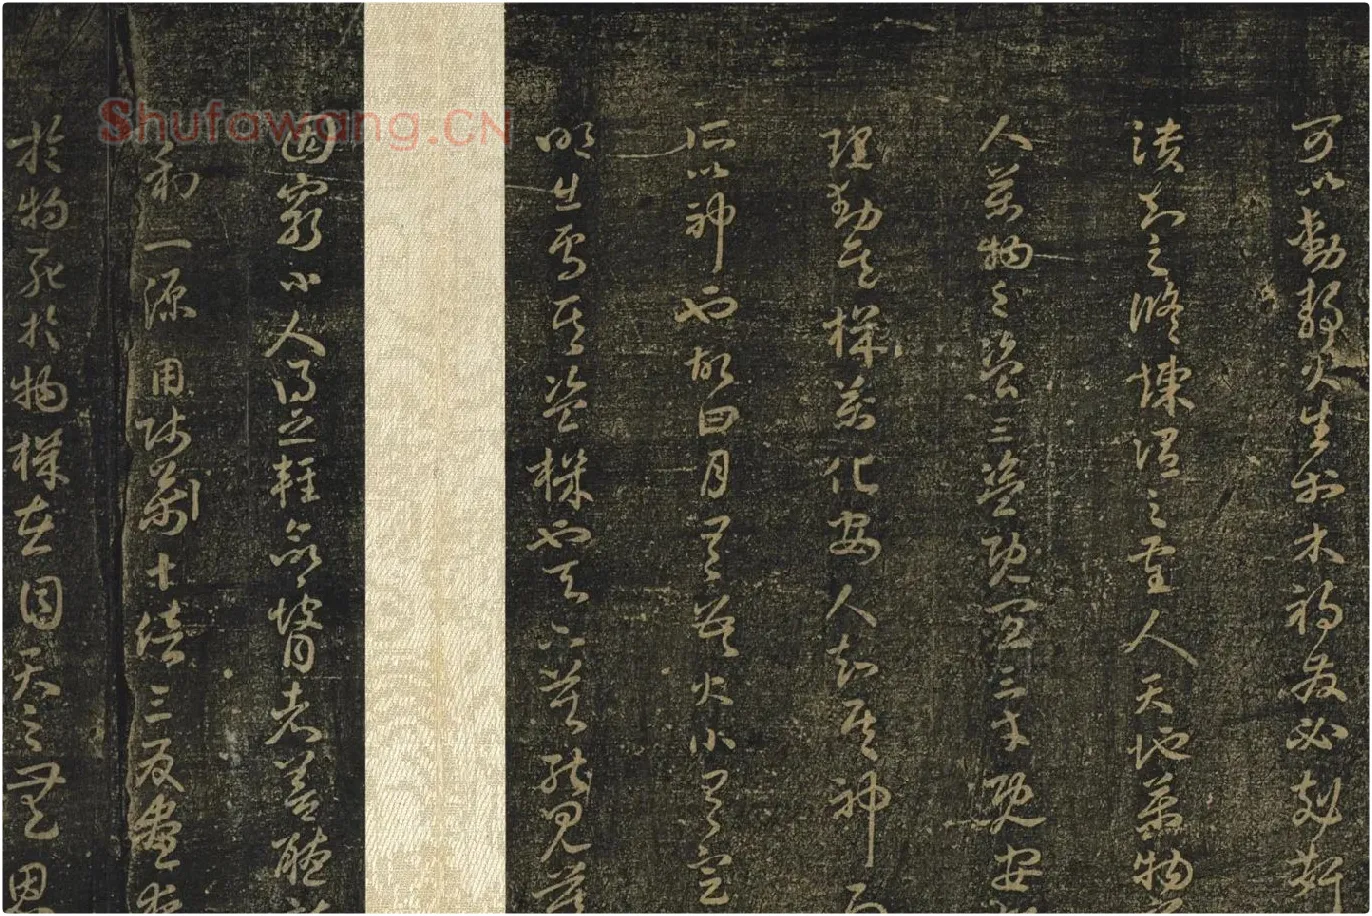 可以動静火生於木禍發必剋姧
潰知之脩煉謂之聖人天地萬物
人萬物之盜三盜既宜三才既安
理動其機萬化安人知其神而
所以神也故曰月有數大小有定
明出焉其盜機也天下莫能見莫
固窮小人得之輕命瞽者善聽
利一源用師萬十倍三反晝夜
於物死於物機在目天之無恩
Shufawang.CN